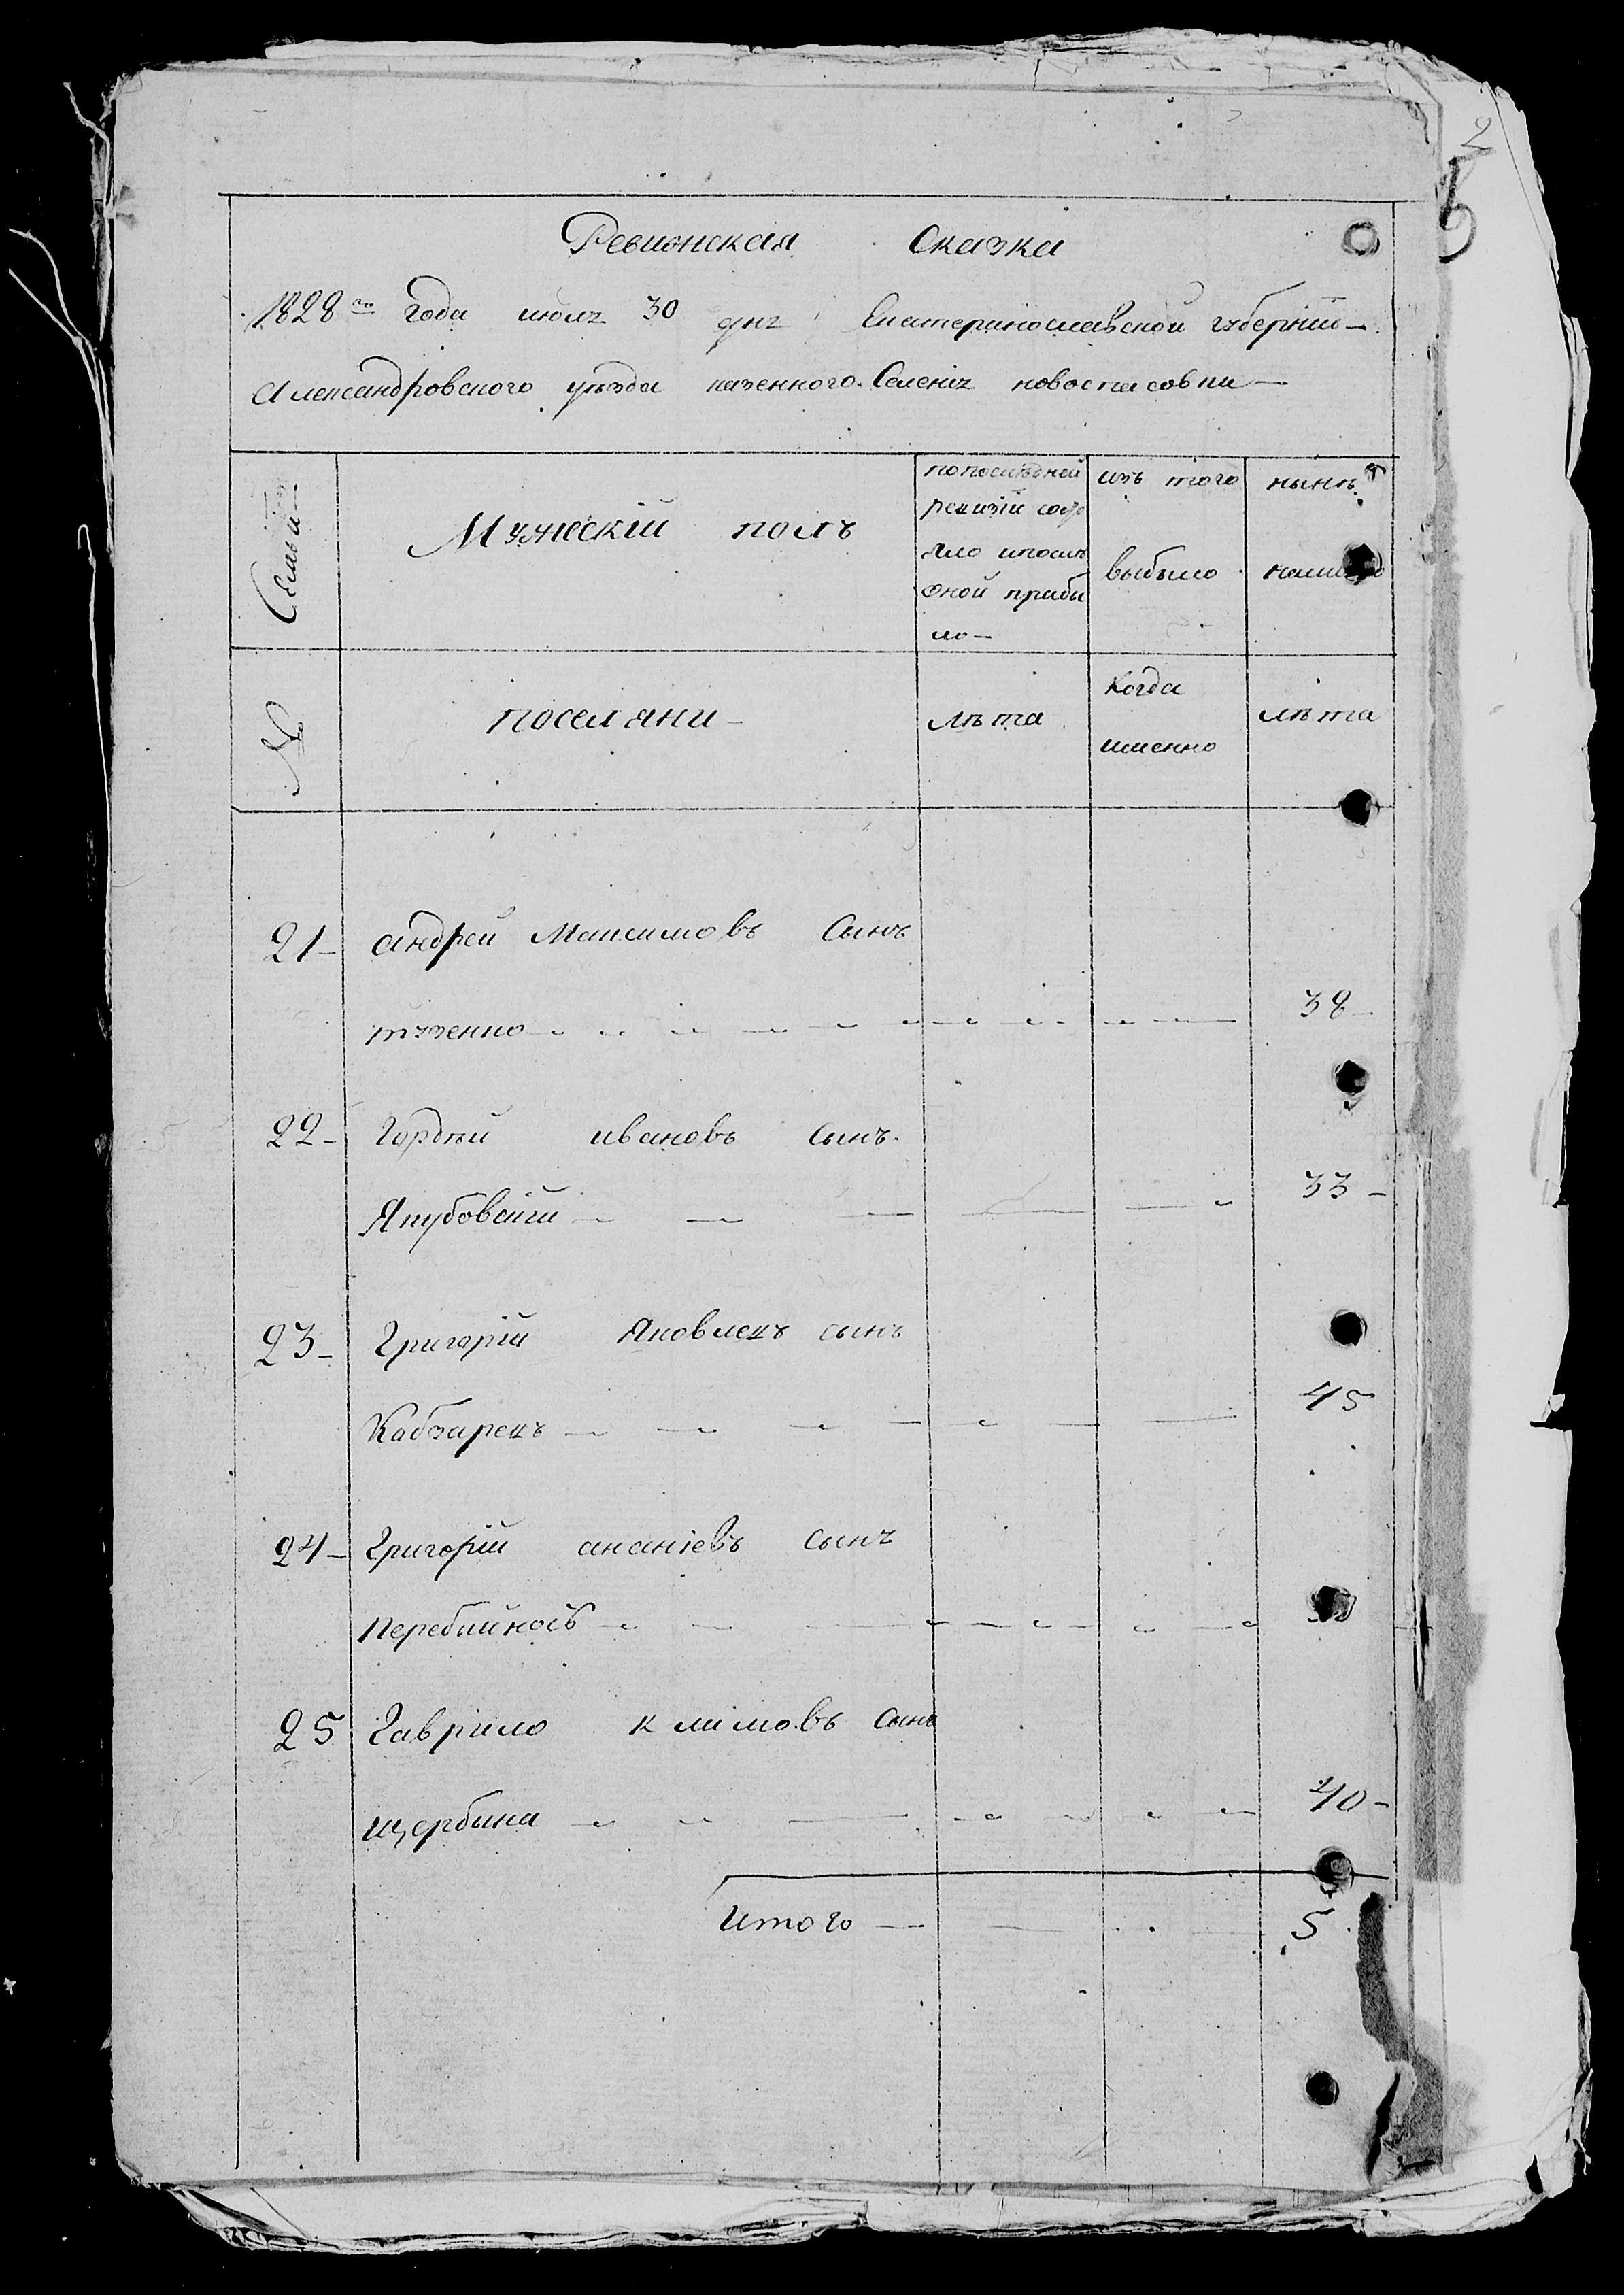 2
5
Ревизская Сказка
1828го года июля 30 дня Екатеринославской губерніи
Александровского уезда казенного Селенія новоспасовки
Семьи
Мужескій полъ
попоследней
ревизіи состо
яло ипосле
оной прибы
ло
изъ того
выбыло
нынѣ
налицо
№
поселяни
лѣта
когда
именно
лѣта
21 андрей Максимовъ Сынъ
38
22 Гордѣй ивановъ сынъ
Якубовскій 33
23 Григорій Яковлевъ сынъ
Кобзаревъ 45
24 Григорій ананіевъ Сынъ
Перебийносъ
25 Гаврило климовъ Сынъ
щербина 40
Итого 5